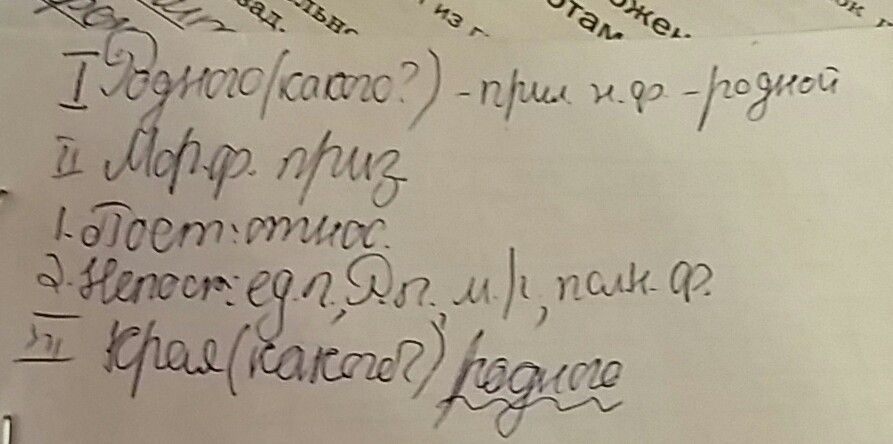 зад.
из г
отам
ожен
I Родного (какого?) - прил н.ф. - родной
II Морф. приз
1. Пост: относ.
2. Непост: ед.ч., Р.п., м.р., полн. ф.
III Края (какого?) родного